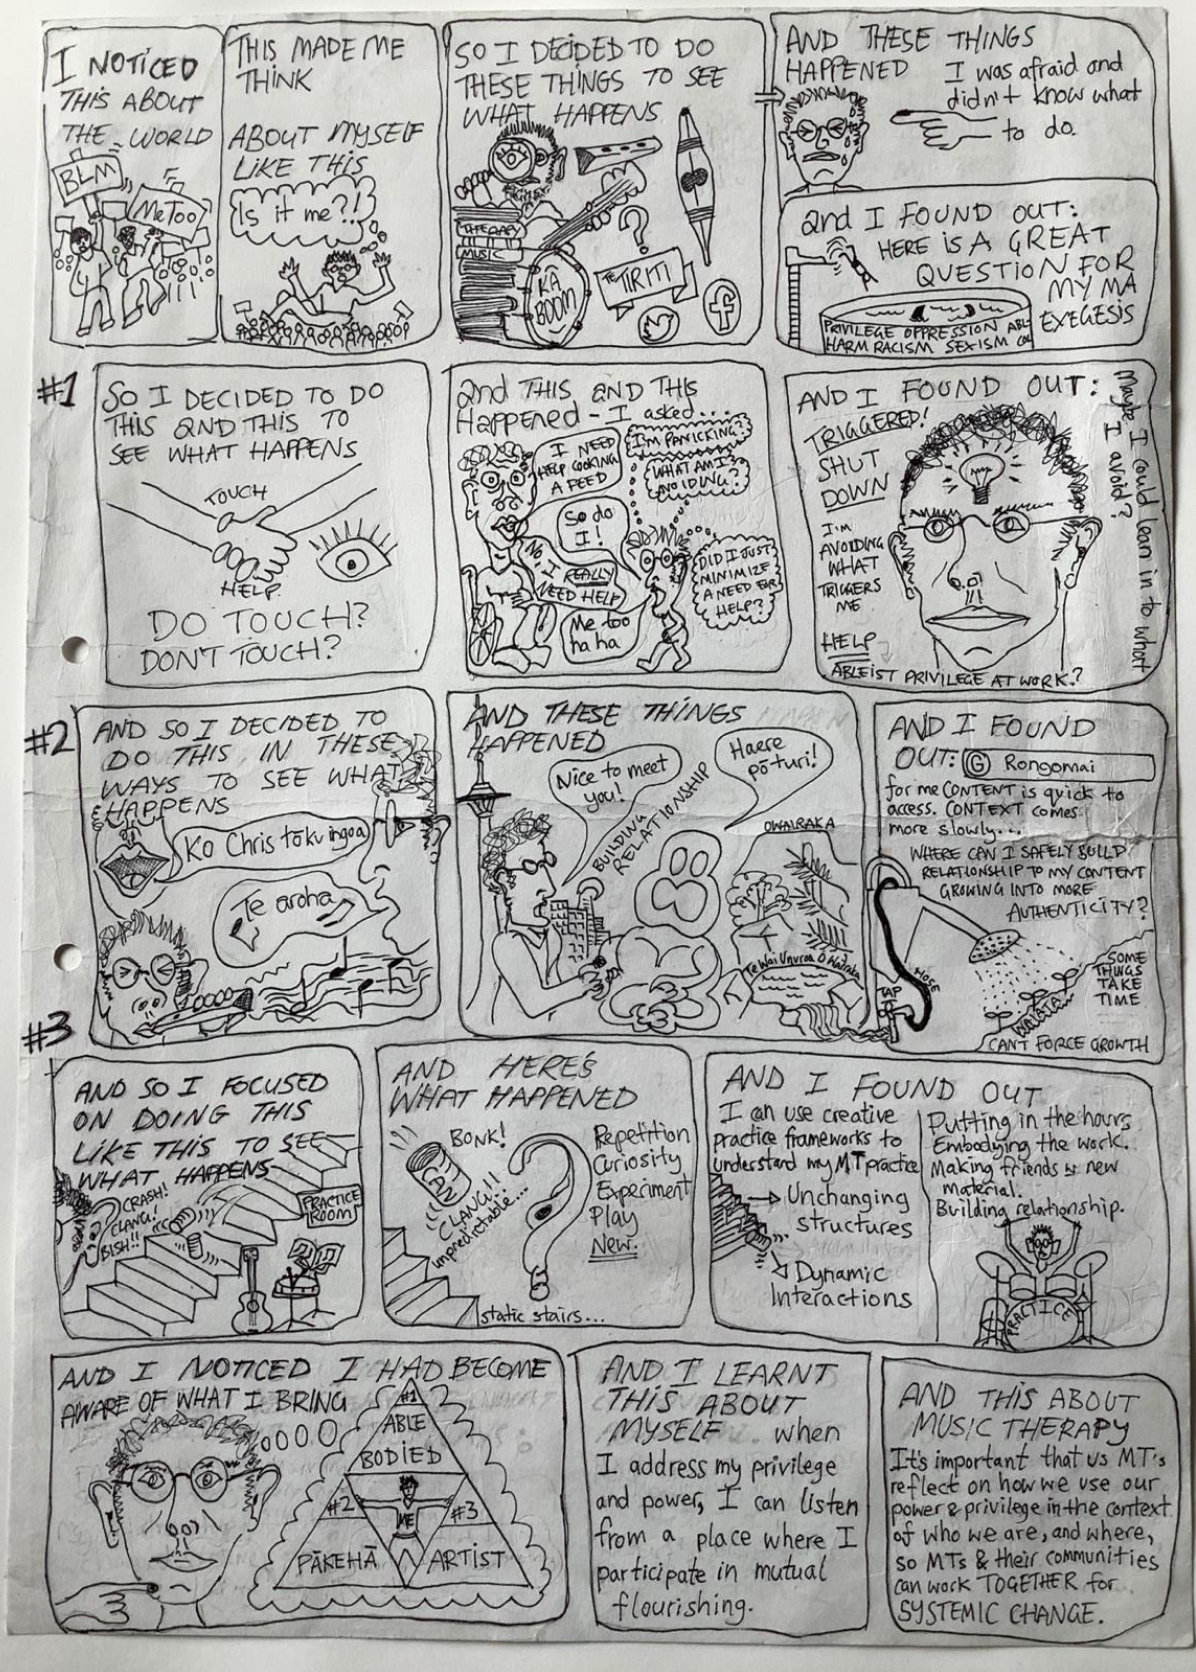 I NOTICED
THIS ABOUT
THE WORLD
BLM
MeToo
THIS MADE ME
THINK
ABOUT MYSELF
LIKE THIS
Is it me?!
SO I DECIDED TO DO
THESE THINGS TO SEE
WHAT HAPPENS
THERAPY
MUSIC
KĀ
BOOM
?
TE TIRITI
f
AND THESE THINGS
HAPPENED
I was afraid and
didn't know what
to do.
and I FOUND OUT:
HERE IS A GREAT
QUESTION FOR
MY MA
EXEGESIS
PRIVILEGE OPPRESSION ABL
HARM RACISM SEXISM
#1
SO I DECIDED TO DO
THIS AND THIS TO
SEE WHAT HAPPENS
TOUCH
HELP
DO TOUCH?
DON'T TOUCH?
and THIS AND THIS
HAPPENED - I asked...
I NEED
HELP COOKING
A FEED
So do
I!
No, I
REALLY
NEED HELP
Me too
ha ha
I'M PANICKING?
WHAT AM I
AVOIDING?
DID I JUST
MINIMIZE
A NEED FOR
HELP?
AND I FOUND OUT:
TRIGGERED!
SHUT
DOWN
I'M
AVOIDING
WHAT
TRIGGERS
ME
HELP
ABLEIST PRIVILEGE AT WORK?
Maybe I could lean in to what
I avoid?
#2
AND SO I DECIDED TO
DO THIS IN THESE
WAYS TO SEE WHAT
HAPPENS
Ko Chris tōku ingoa
Te aroha
AND THESE THINGS
HAPPENED
Nice to meet
you!
BUILDING
RELATIONSHIP
Haere
pō turi!
OWAIRAKA
AND I FOUND
OUT: G Rongomai
for me CONTENT is quick to
access. CONTEXT comes
more slowly...
WHERE CAN I SAFELY BUILD
RELATIONSHIP TO MY CONTENT
GROWING INTO MORE
AUTHENTICITY?
HOSE
TAP
SOME
THINGS
TAKE
TIME
WAIATA
CAN'T FORCE GROWTH
#3
AND SO I FOCUSED
ON DOING THIS
LIKE THIS TO SEE
WHAT HAPPENS
CRASH!
CLANG!
BISH!!
PRACTICE
ROOM
AND HERE'S
WHAT HAPPENED
BONK!
CAN
CLANG!!
unpredictable...
Repetition
Curiosity
Experiment
Play
New.
static stairs...
AND I FOUND OUT
I can use creative
practice frameworks to
understand my MT practice
Unchanging
structures
Dynamic
Interactions
Putting in the hours
Embodying the work.
Making friends w new
material.
Building relationship.
PRACTICE
AND I NOTICED I HAD BECOME
AWARE OF WHAT I BRING
#1
ABLE
BODIED
#2
ME
#3
PĀKEHĀ
ARTIST
AND I LEARNT
THIS ABOUT
MYSELF when
I address my privilege
and power, I can listen
from a place where I
participate in mutual
flourishing.
AND THIS ABOUT
MUSIC THERAPY
It's important that us MT's
reflect on how we use our
power & privilege in the context
of who we are, and where,
so MTs & their communities
can work TOGETHER for
SYSTEMIC CHANGE.